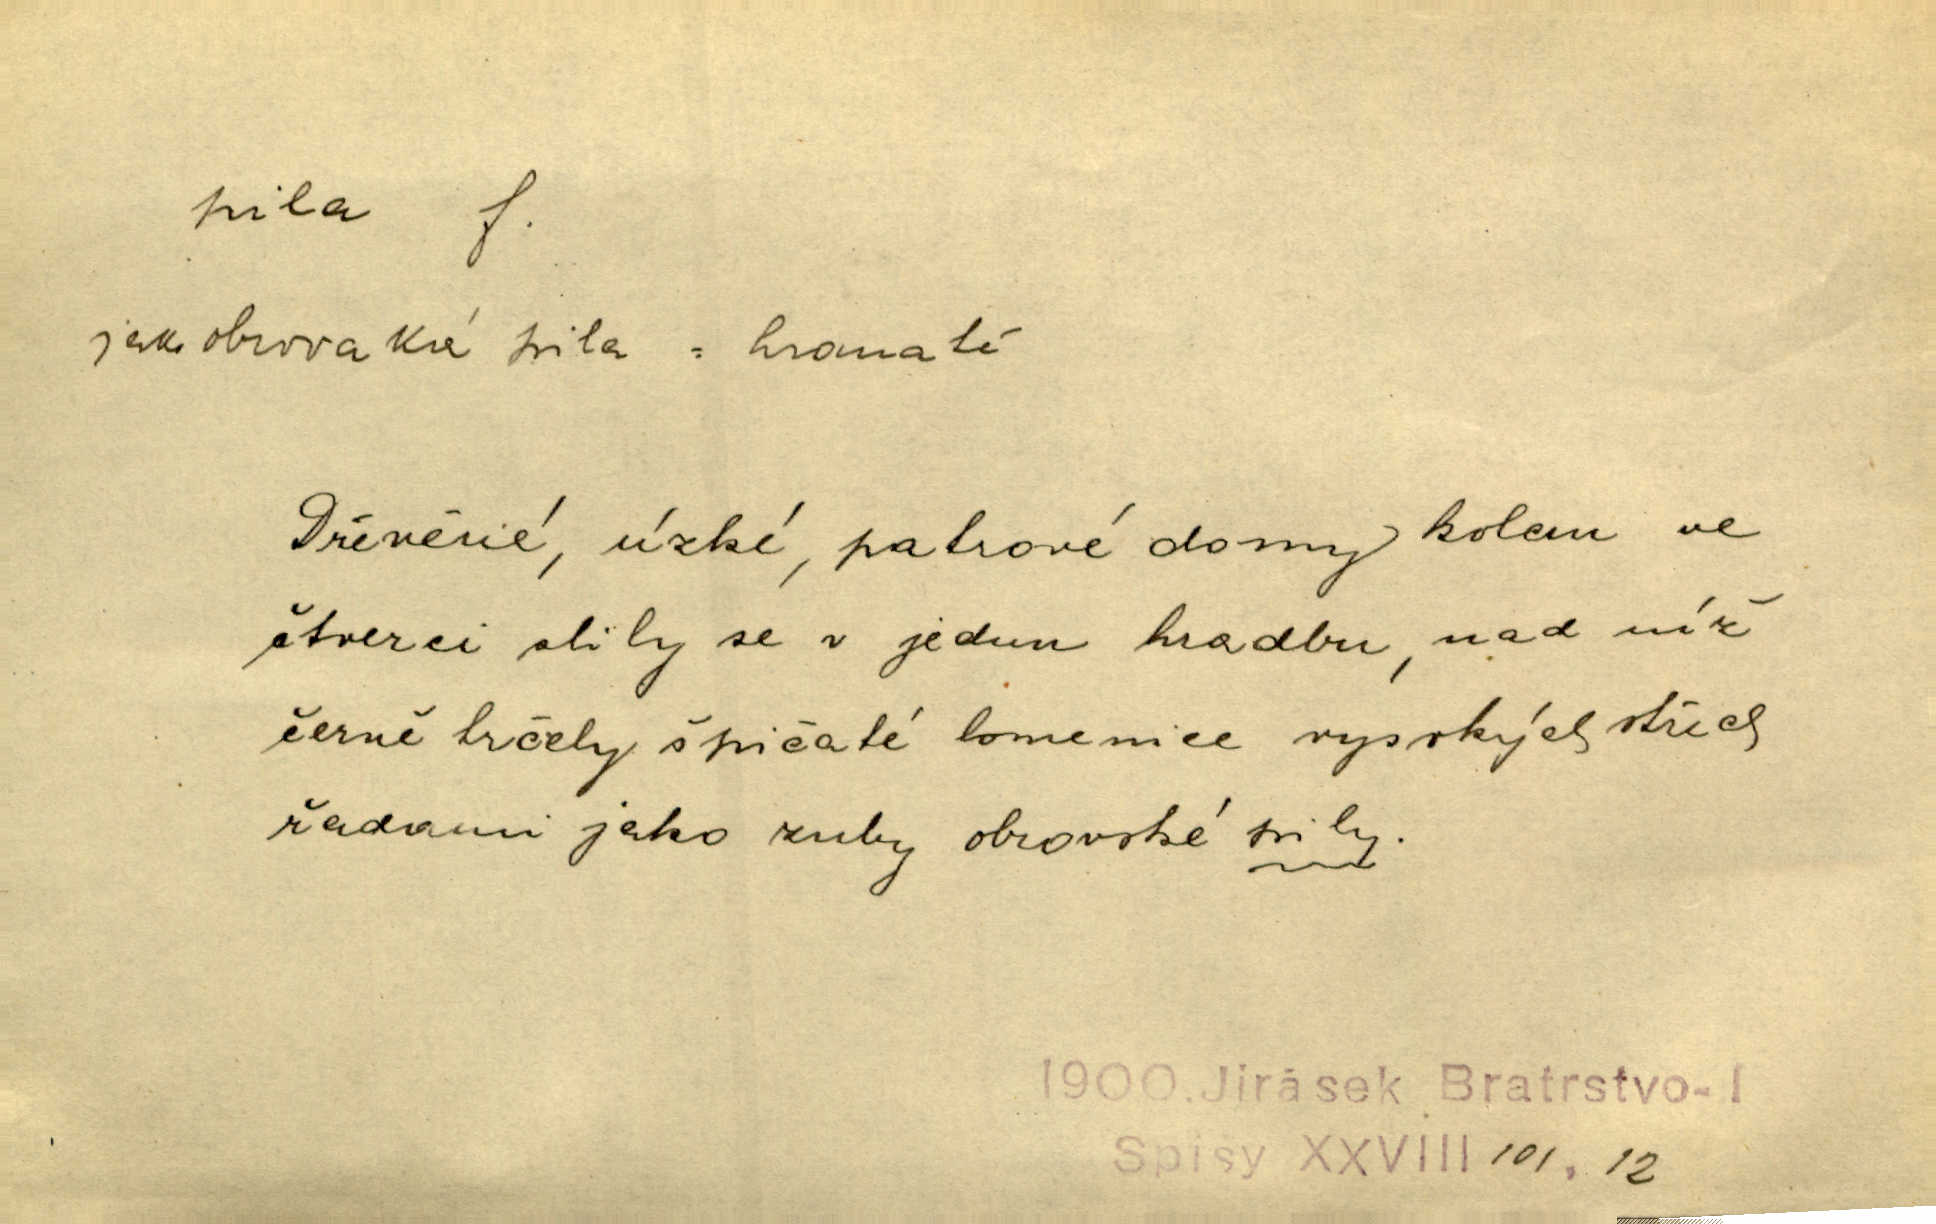 pila f.
jako obrovská pila = hranatě
Dřevěné, úzké, patrové domy kolem ve
čtverci slily se v jednu hradbu, nad níž
černě trčely špičaté lomenice vysokých střech
řadami jako zuby obrovské pily.
1900. Jirásek Bratrstvo-I
Spisy XXVIII 101, 12